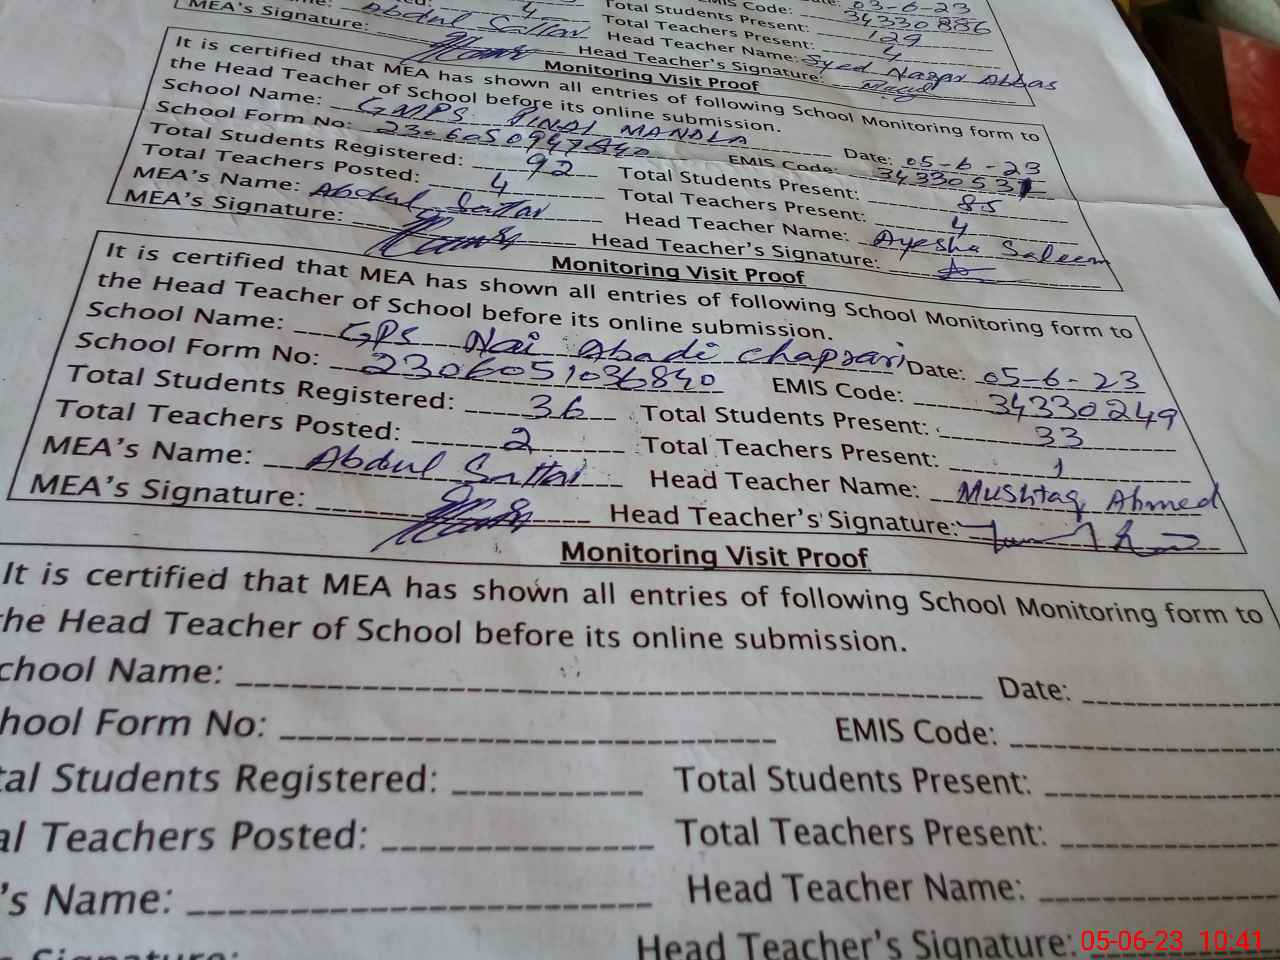 4
Date: 03-6-23
EMIS Code: 34330886
Total Students Present: 129
MEA's Name: Abdul Sattar Total Teachers Present: 4
MEA's Signature: Head Teacher Name: Syed Nazar Abbas
Head Teacher's Signature:
Monitoring Visit Proof
It is certified that MEA has shown all entries of following School Monitoring form to
the Head Teacher of School before its online submission.
School Name: GMPS PINDI MANDLA Date: 05-6-23
School Form No: EMIS Code:
Total Students Registered: 92 Total Students Present: 85
Total Teachers Posted: 4 Total Teachers Present: 4
MEA's Name: Abdul Sattar Head Teacher Name: Ayesha Saleem
MEA's Signature: Head Teacher's Signature:
Monitoring Visit Proof
It is certified that MEA has shown all entries of following School Monitoring form to
the Head Teacher of School before its online submission.
School Name: GPS Nai Abadi Chapsari Date: 05-6-23
School Form No: 2306051036840 EMIS Code: 34330249
Total Students Registered: 36 Total Students Present: 33
Total Teachers Posted: 2 Total Teachers Present: 1
MEA's Name: Abdul Sattar Head Teacher Name: Mushtaq Ahmed
MEA's Signature: Head Teacher's Signature:
Monitoring Visit Proof
It is certified that MEA has shown all entries of following School Monitoring form to
the Head Teacher of School before its online submission.
chool Name: Date:
hool Form No: EMIS Code:
tal Students Registered: Total Students Present:
al Teachers Posted: Total Teachers Present:
's Name: Head Teacher Name:
Signature: Head Teacher's Signature:
05-06-23 10:41